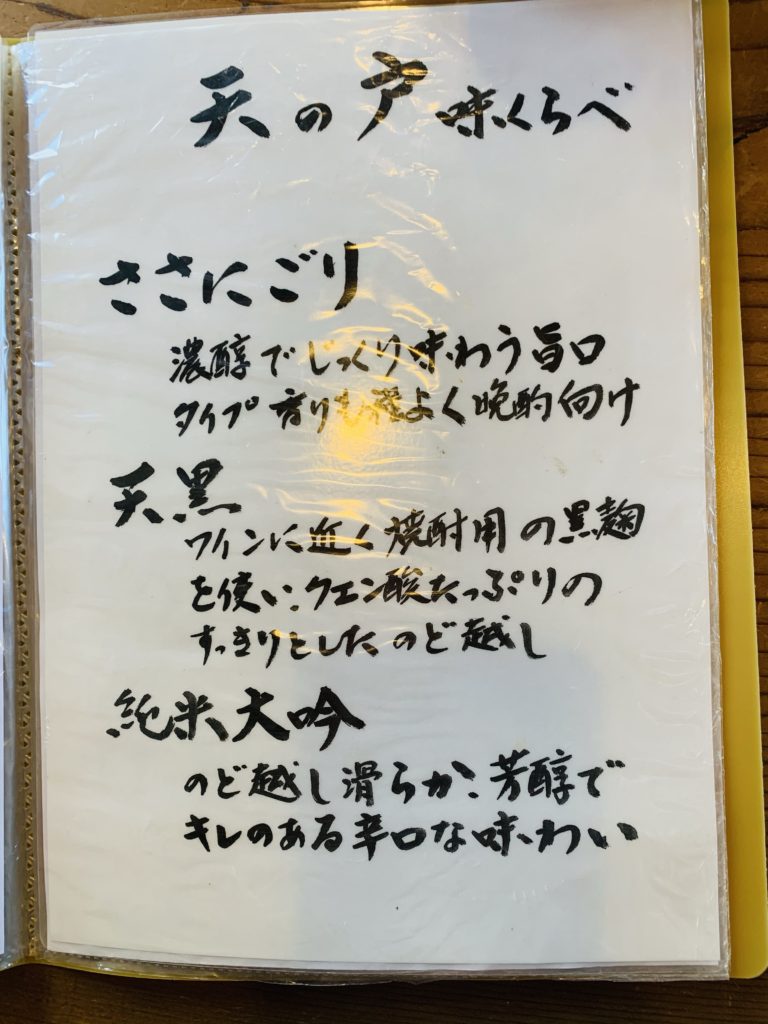 天の戸味くらべ
ささにごり
濃醇でじっくり味わう旨口
タイプ 香りも程よく晩酌向け
天黒
ワインに近く焼酎用の黒麹
を使い、クエン酸たっぷりの
すっきりとしたのど越し
純米大吟
のど越し滑らか、芳醇で
キレのある辛口な味わい